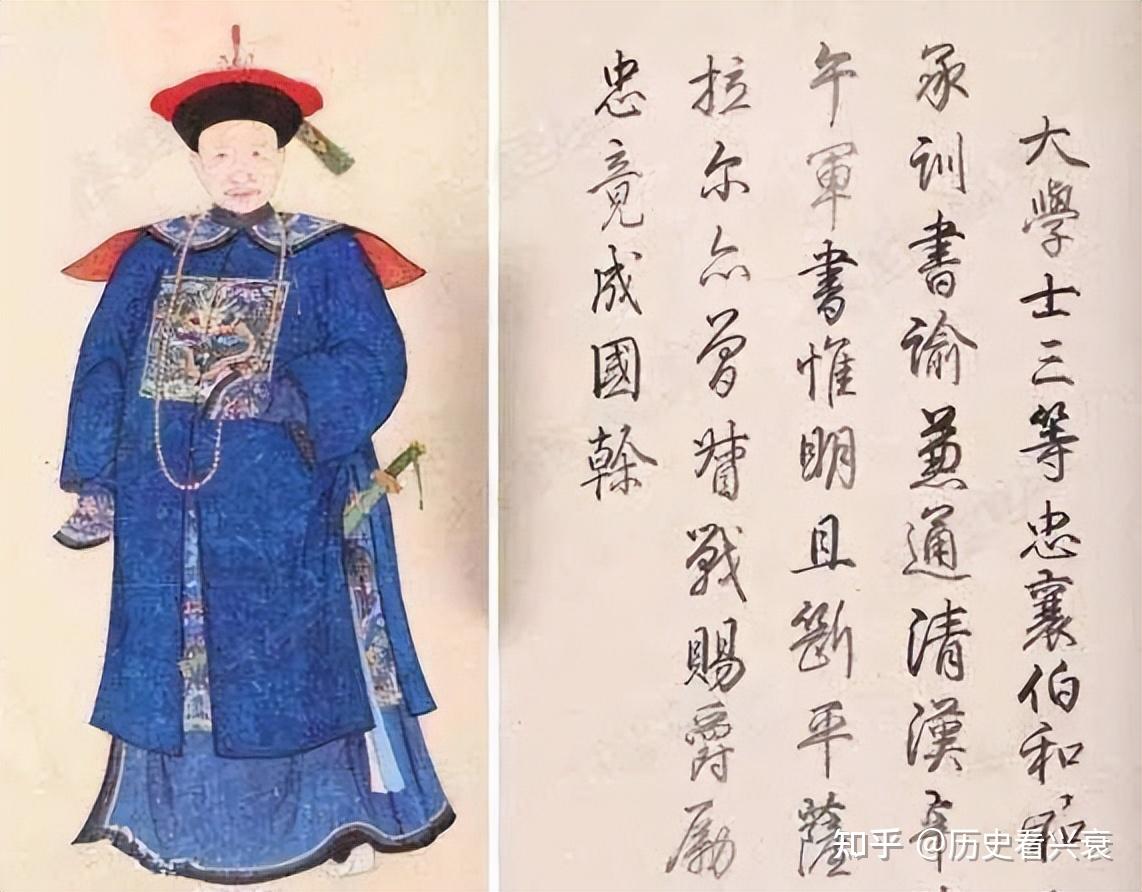 大學士三等忠襄伯和珅
承训書谕兼通清漢
午軍書惟明且斷平薩
拉尔亦曾督戰賜爵勵
忠竟成國幹
知乎 @历史看兴衰